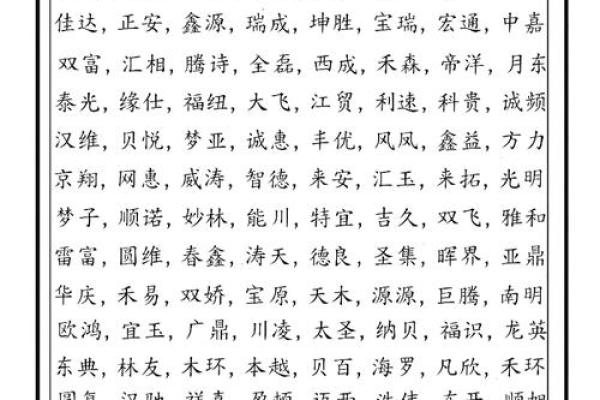 佳达，正安，鑫源，瑞成，坤胜，宝瑞，宏通，中嘉
双富，汇相，腾诗，全磊，西成，禾森，帝洋，月东
泰光，缘仕，福纽，大飞，江贸，利速，科贵，诚频
汉维，贝悦，梦亚，诚惠，丰优，风凤，鑫益，方力
京翔，网惠，威涛，智德，来安，汇玉，来拓，光明
梦子，顺诺，妙林，能川，特宜，吉久，双飞，雅和
雷富，圆维，春鑫，涛天，德良，圣集，晖界，亚鼎
华庆，禾易，双娇，宝原，天木，源源，巨腾，南明
欧鸿，宜玉，广鼎，川凌，太圣，纳贝，福识，龙英
东典，林友，木环，本越，贝百，海罗，凡欣，禾环